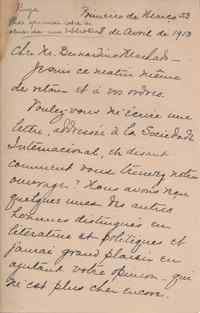 Primeiro de Março 53
de Avril de 1910
Cher Mr. Bernardino Machado
Je suis ce matin même
de retour et à vos ordres.
Voulez vous m'écrire une
lettre, adressée à la Sociedade
Internacional, ch disant
comment vous trouvez notre
ouvrage? Nous avons eu
quelques unes des autres
hommes distingués en
literature et politiques et
j'aurai grand plaisir en
ajutant votre opinion, qui
m'est plus cher encore.